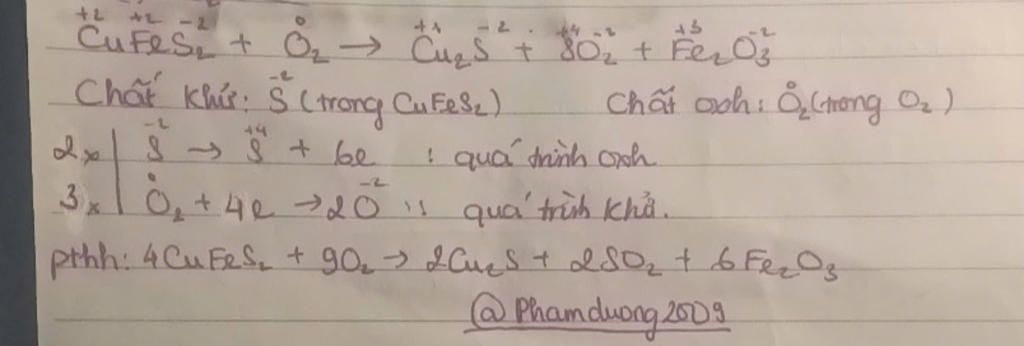 +2 +2 -2 0 +1 -2 +4 -2 +3 -2
CuFeS₂ + O₂ → Cu₂S + SO₂ + Fe₂O₃
Chất khử: S⁻² (trong CuFeS₂) Chất oxh: O₂⁰ (trong O₂)
2x | S⁻² → S⁺⁴ + 6e : quá trình oxh
3x | O₂⁰ + 4e → 2O⁻² : quá trình khử.
pthh: 4CuFeS₂ + 9O₂ → 2Cu₂S + 2SO₂ + 6Fe₂O₃
@Phamduong2009